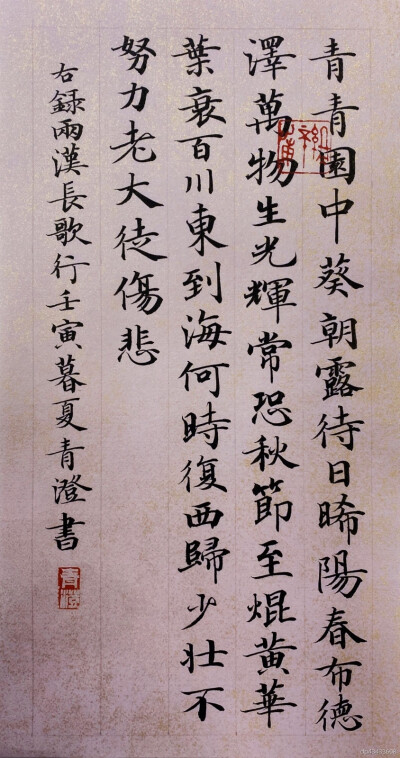 青青園中葵朝露待日晞陽春布德
澤萬物生光輝常恐秋節至焜黄華
葉衰百川東到海何時復西歸少壯不
努力老大徒傷悲
右録兩漢長歌行壬寅暮夏青澄書
青澄